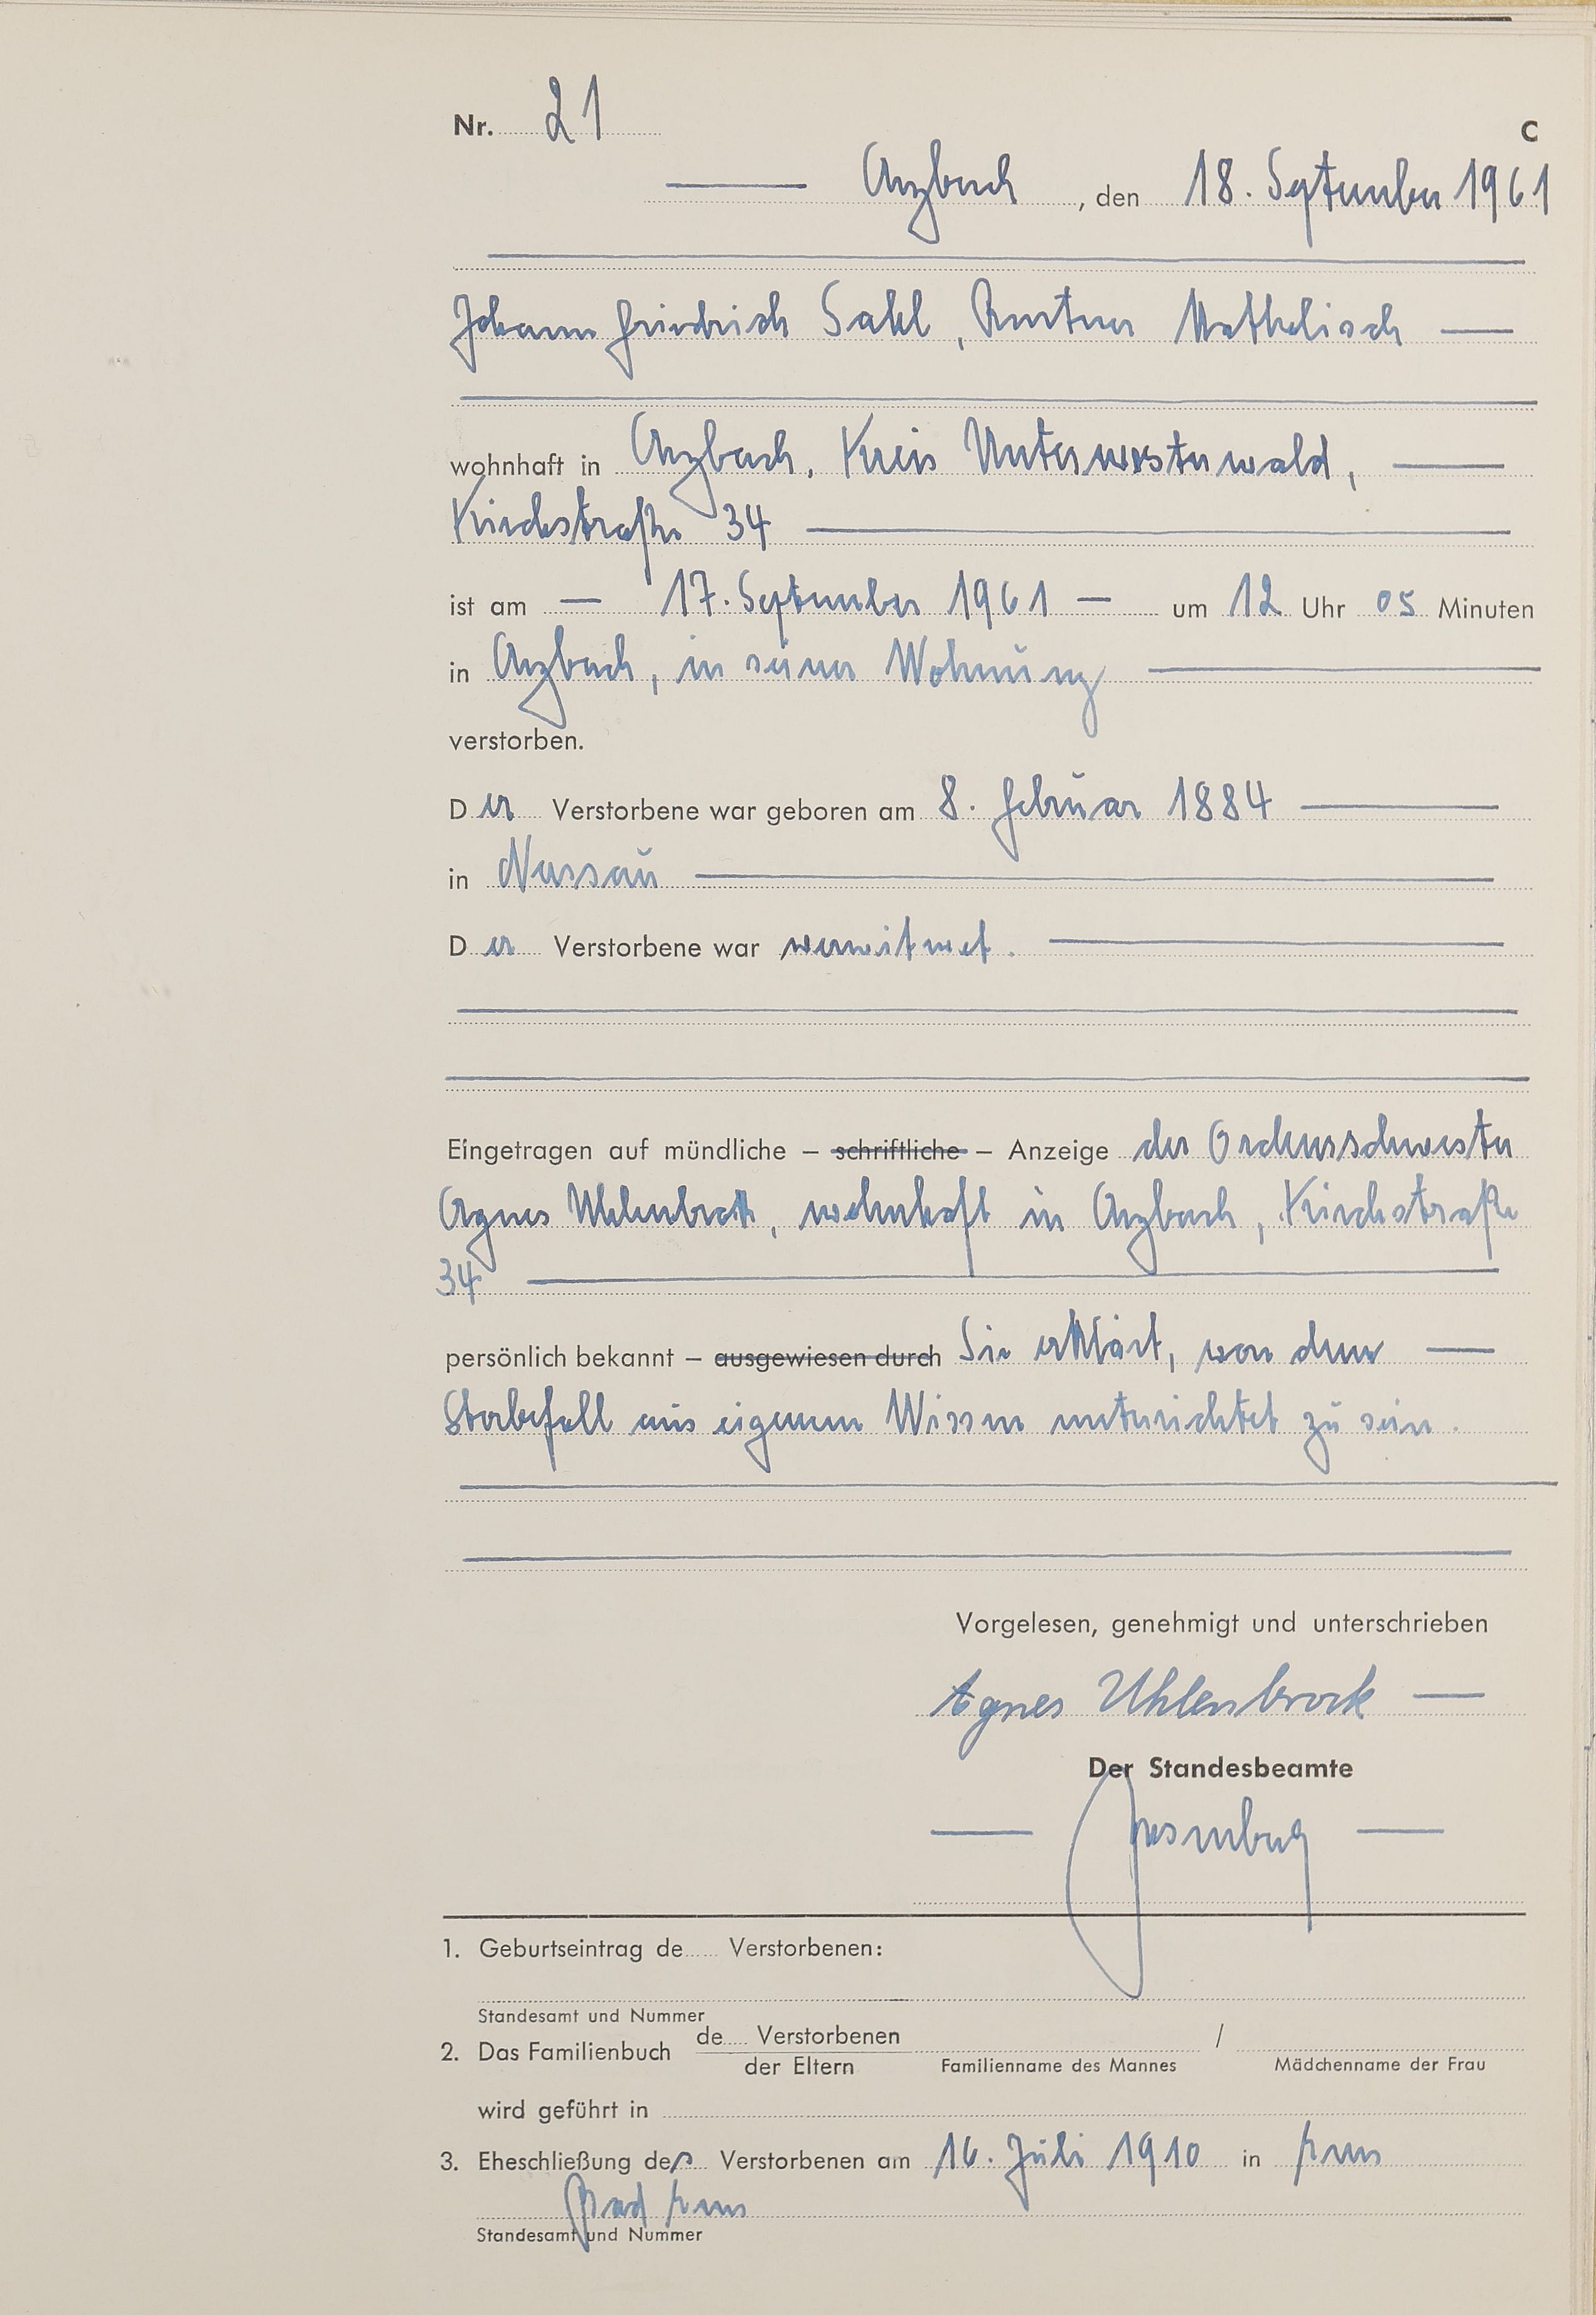 Nr. 21
C
Arzbach, den 18. September 1961
Johann Friedrich Sahl, Rentner Katholisch
wohnhaft in Arzbach, Kreis Unterwesterwald,
Kirchstraße 34
ist am 17. September 1961 um 12 Uhr 05 Minuten
in Arzbach, in seiner Wohnung
verstorben.
Der Verstorbene war geboren am 8. Februar 1884
in Nassau
Der Verstorbene war verwitwet.
Eingetragen auf mündliche – schriftliche – Anzeige der Ordensschwester
Agnes Uhlenbrock, wohnhaft in Arzbach, Kirchstraße
34
persönlich bekannt – ausgewiesen durch Sie erklärt, von dem
Sterbefall aus eigenem Wissen unterrichtet zu sein.
Vorgelesen, genehmigt und unterschrieben
Agnes Uhlenbrock
Der Standesbeamte
1. Geburtseintrag de Verstorbenen:
Standesamt und Nummer
2. Das Familienbuch de Verstorbenen /
der Eltern Familienname des Mannes Mädchenname der Frau
wird geführt in
3. Eheschließung des Verstorbenen am 16. Juli 1910 in Ems
Bad Ems
Standesamt und Nummer